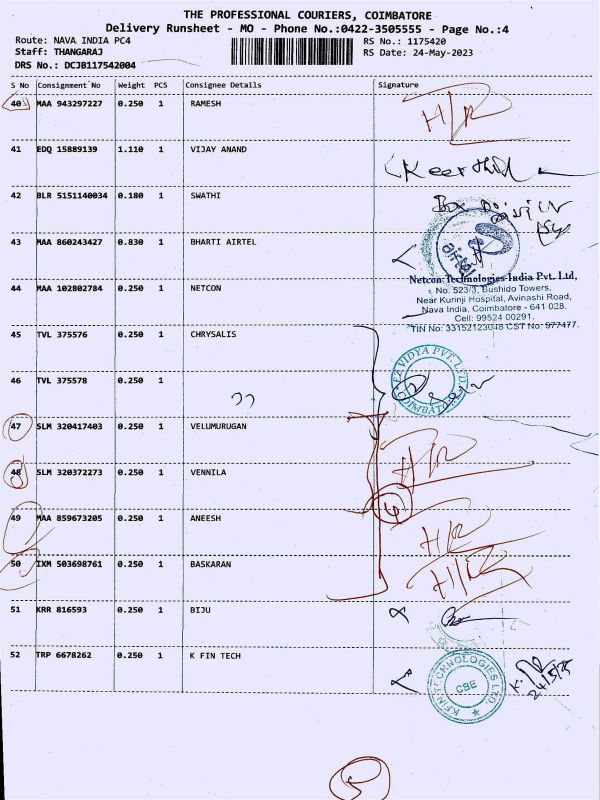 THE PROFESSIONAL COURIERS, COIMBATORE
Delivery Runsheet - MO - Phone No.:0422-3505555 - Page No.:4
Route: NAVA INDIA PC4 RS No.: 1175420
Staff: THANGARAJ RS Date: 24-May-2023
DRS No.: DCJB117542004
S No Consignment No Weight PCS Consignee Details Signature
40 MAA 943297227 0.250 1 RAMESH
41 EDQ 15889139 1.110 1 VIJAY ANAND
42 BLR 5151140034 0.180 1 SWATHI
43 MAA 860243427 0.830 1 BHARTI AIRTEL
airtel
44 MAA 102802784 0.250 1 NETCON
Netcon Technologies India Pvt. Ltd,
No. 523/3, Bushido Towers.
Near Kurinji Hospital, Avinashi Road,
Nava India, Coimbatore - 641 028.
Cell: 99524 00291.
TIN No: 33152123048 CST No: 977477.
45 TVL 375576 0.250 1 CHRYSALIS
46 TVL 375578 0.250 1
EZ VIDYA PVT. LTD.
COIMBATORE
47 SLM 320417403 0.250 1 VELUMURUGAN
48 SLM 320372273 0.250 1 VENNILA
49 MAA 859673205 0.250 1 ANEESH
50 IXM 503698761 0.250 1 BASKARAN
51 KRR 816593 0.250 1 BIJU
52 TRP 6678262 0.250 1 K FIN TECH
KFIN TECHNOLOGIES LTD.
CBE
5